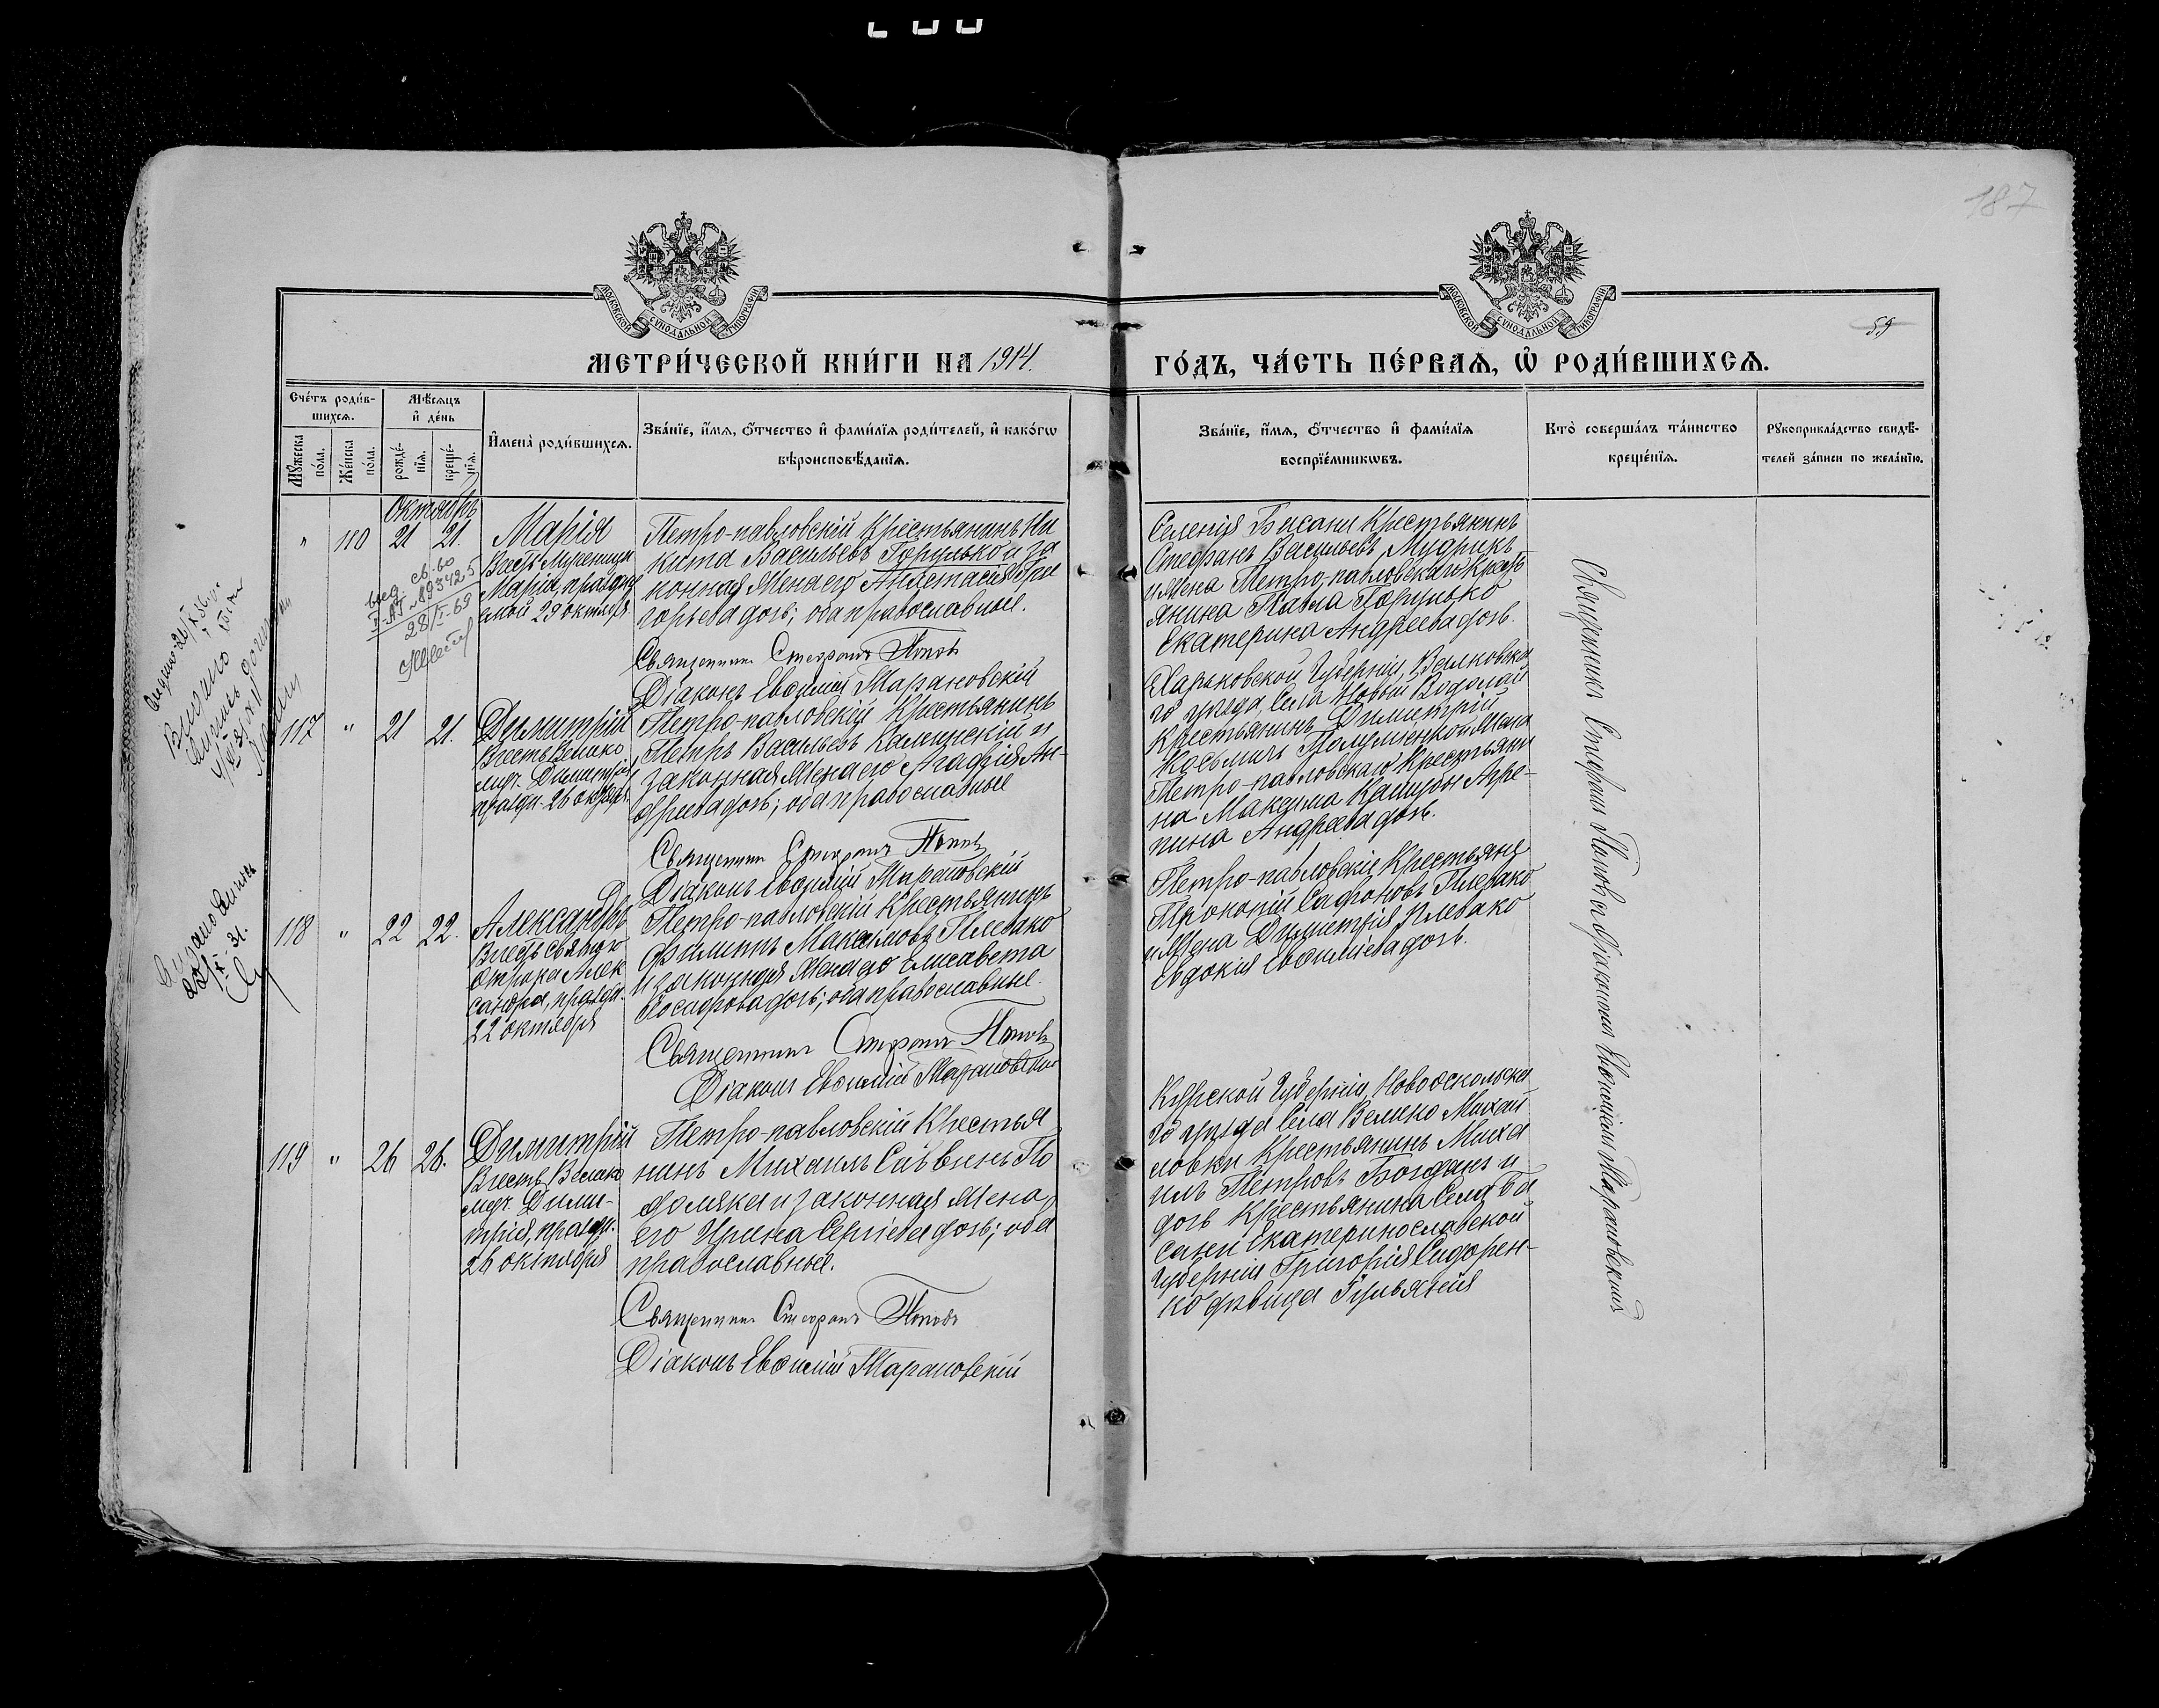 187
59
МОСКОВСКОЙ СѴНОДАЛЬНОЙ ТИПОГРАФІИ
МОСКОВСКОЙ СѴНОДАЛЬНОЙ ТИПОГРАФІИ
МЕТРИ́ЧЕСКОЙ КНИ́ГИ НА 1914. ГО́ДЪ, ЧА́СТЬ ПЕ́РВАѦ, Ѡ҆ РОДИ́ВШИХСѦ.
Сче́тъ роди́в-
шихсѧ.
Мꙋ́жеска
по́ла.
Же́нска
по́ла.
Мѣ́сѧцъ
и҆ де́нь
рожде́-
нїѧ.
креще́-
нїѧ.
И҆мена̀ роди́вшихсѧ.
Зва́нїе, и҆́мѧ, ѻ҆́тчество и҆ фами́лїѧ роди́телей, и҆ како́гѡ
вѣроисповѣ́данїѧ.
Зва́нїе, и҆́мѧ, ѻ҆́тчество и҆ фами́лїѧ
воспрїе́мникѡвъ.
Кто̀ соверша́лъ та́инство
креще́нїѧ.
Рꙋкоприкла́дство свидѣ́-
телей за́писи по жела́нїю.
Октябрь
" 110 21 21.
Марія
Въ честь Мученицы
Маріи, праздну
емой 29 октября
св-во
893425
28/I-69
Петро-павловскій Крестьянинъ Ни
кита Васильевъ Горулько и за
конная Жена его Анастасия Гри
горьева дочь; оба православные.
Священникъ Стефанъ Поповъ
Діаконъ Евѳимій Тарановскій
Селенія Бысани Крестьянинъ
Стефанъ Васильевъ Мудрикъ
и Жена Петро-павловскаго Крест
янина Павла Горулько
Екатерина Андреева дочь.
117 " 21 21.
Димитрій
Въ честь Велико
муч. Димитрія,
праздн. 26 октября.
Петро-павловскій Крестьянинъ
Петръ Васильевъ Калинскій и
законная Жена его Агафія Ан-
дреева дочь; оба православные
Священникъ Стефанъ Поповъ
Діаконъ Евѳимій Тарановскій
Харьковской Губерніи, Валковска
го уезда, Села Новой Водолаги
Крестьянинъ Димитрій
Косьминъ и Жена
Петро-павловскаго Крестьяни
на Максима Агре-
пина Андреева дочь.
118 " 22 22.
Александръ
В честь Святаго
Отрока Алек
сандра, праздн.
22 октября
Петро-павловскій Крестьянинъ
Филиппъ Максимовъ Плевако
и законная Жена его Елисавета
Іосифова дочь; оба православные.
Священникъ Стефанъ Поповъ
Діаконъ Евѳимій Тарановскій
Петро-павловскіе Крестьяне
Прокопій Сафоновъ Плевако
и Жена Димитрія Плевако
Евдокія Евѳиміева дочь.
119 " 26 26.
Димитрій
В честь Велико
муч. Дими-
трія, праздн.
26 октября
Петро-павловскій Крестья
нинъ Михаилъ Саввинъ По
доляка и законная Жена
его Ирина Сергіева дочь; оба
православные.
Священникъ Стефанъ Поповъ
Діаконъ Евѳимій Тарановскій
Курской Губерніи, Новооскольска
го уезда Села Велико Михай
ловки Крестьянинъ Миха
илъ Петровъ Богданъ и
дочь Крестьянина Села Ба
сани Екатеринославской
Губерніи Григорія Сидорен-
ко девица Гульянія
Священникъ Стефанъ Поповъ с діакономъ Евѳиміемъ Тарановскимъ